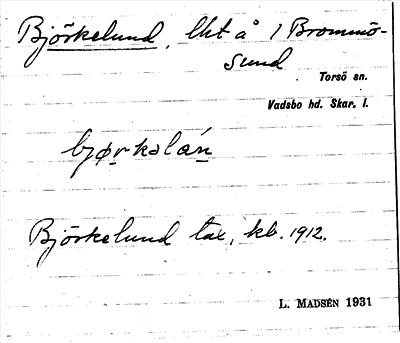 Björkelund, lht å 1 Brommö-
sund
Torsö sn.
Vadsbo hd. Skar. l.
bjørkəlán
Björkelund tax, kb. 1912.
L. MADSÉN 1931